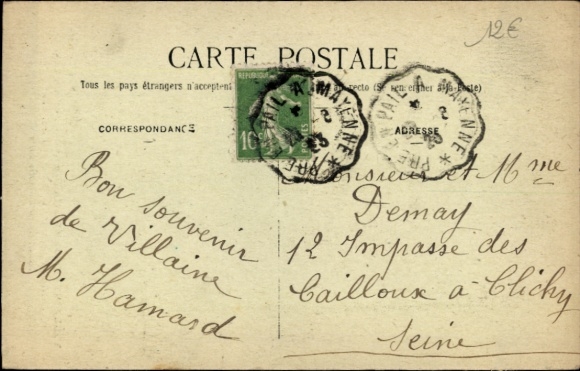 12€
CARTE POSTALE
Tous les pays étrangers n'acceptent recto (Se renseigner à la Poste)
CORRESPONDANCE
ADRESSE
10
POSTES
PRE-EN-PAIL A MAYENNE *
PRE-EN-PAIL A MAYENNE *
Bon souvenir
de Villaine
M. Hamard
Monsieur et Mme
Demay
12 Impasse des
Cailloux à Clichy
Seine